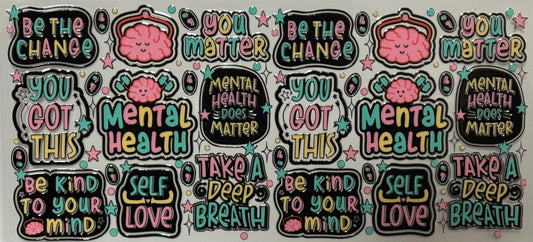 BE THE
CHANGE
YOU
matter
BE THE
CHANGE
YOU
matter
YOU
GOT
THIS
MENTAL
HEALTH
MENTAL
HEALTH
DOES
MATTER
YOU
GOT
THIS
MENTAL
HEALTH
MENTAL
HEALTH
DOES
MATTER
BE KIND
TO YOUR
mIND
SELF
LOVE
TAKE A
DEEP
BREATH
BE KIND
TO YOUR
mIND
SELF
LOVE
TAKE A
DEEP
BREATH